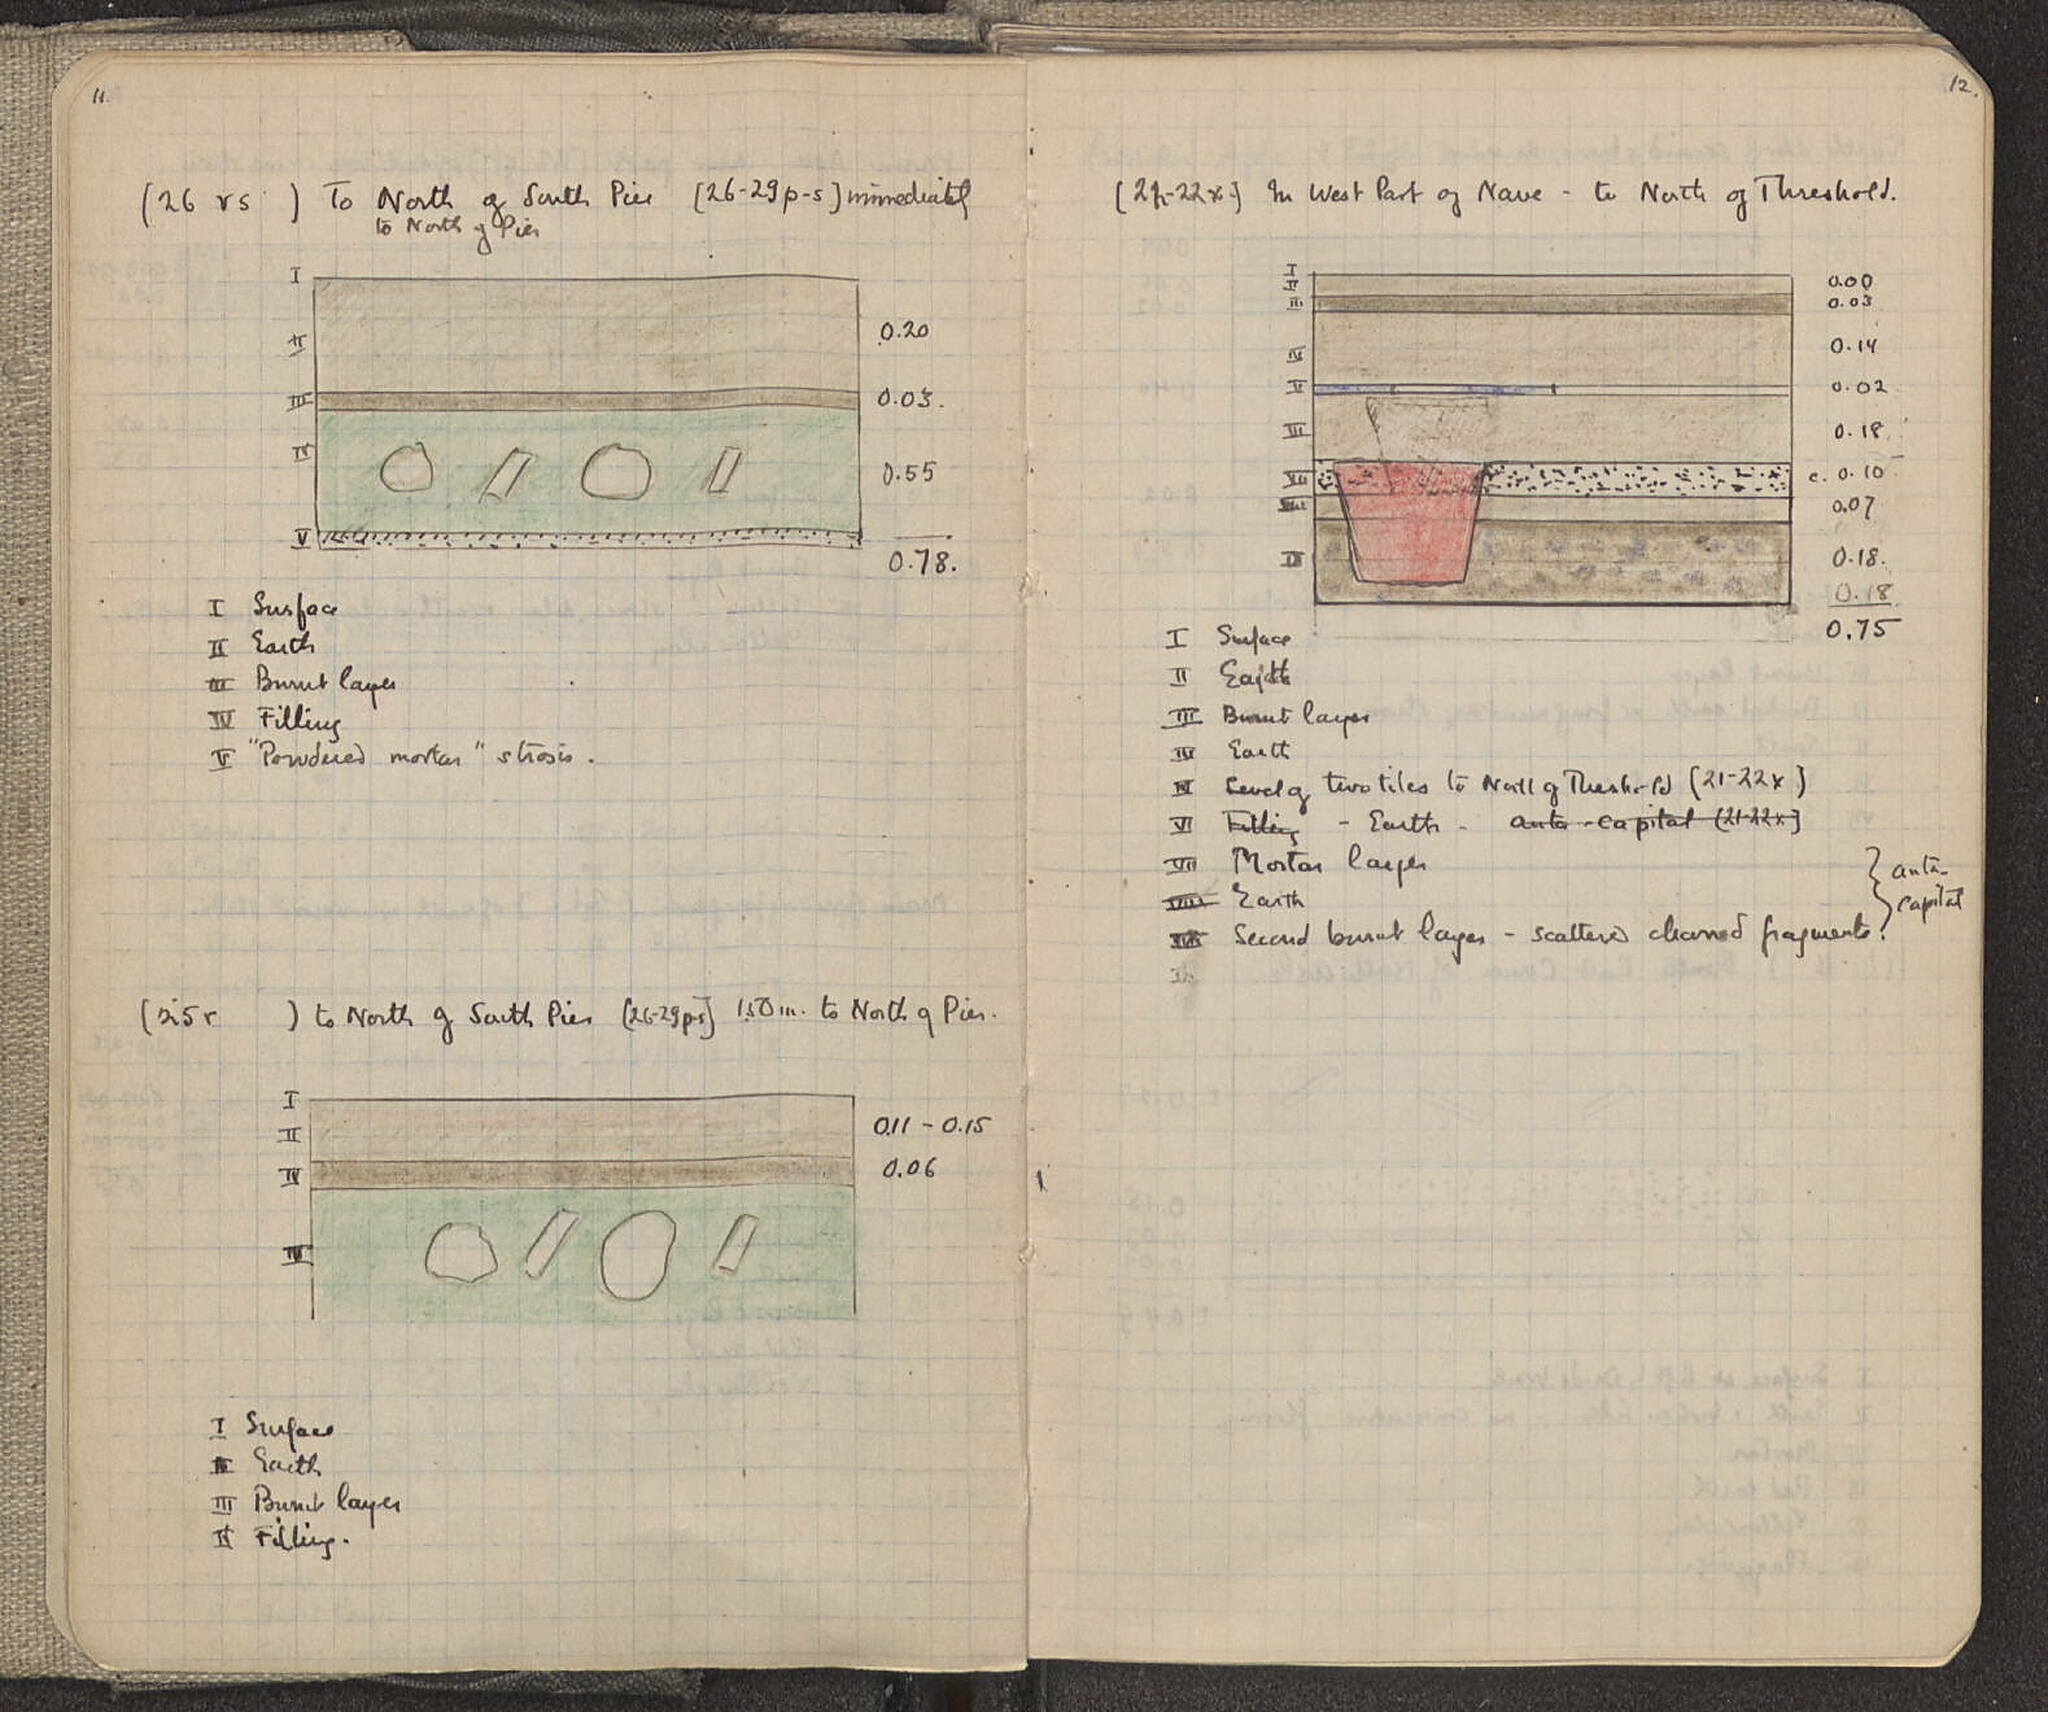 11.
(26 rs ) To North of South Pier [26-29p-s] immediately
to North of Pier
I
II
0.20
III
0.03.
IV
0.55
V
0.78.
I Surface
II Earth
III Burnt layer
IV Filling
V "Powdered mortar" strosis.
(25r ) to North of South Pier [26-29p-s] 1.50 m. to North of Pier.
I
II
0.11 - 0.15
IV
0.06
IV
I Surface
II Earth
III Burnt layer
IV Filling.
12.
In West Part of Nave - to North of Threshold.
I
II
0.00
III
0.03
IV
0.14
V
0.02
0.18
VII
c. 0.10
VIII
0.07
IX
0.18.
0.18
0.75
I Surface
II Earth
III Burnt layer
IV Earth
Level of two tiles to North of Threshold (21-22x)
VI Filling - Earth - anta-capital (21-22x)
VII Mortar layer
VIII Earth
Second burnt layer - scattered charred fragments.
anta-
capital